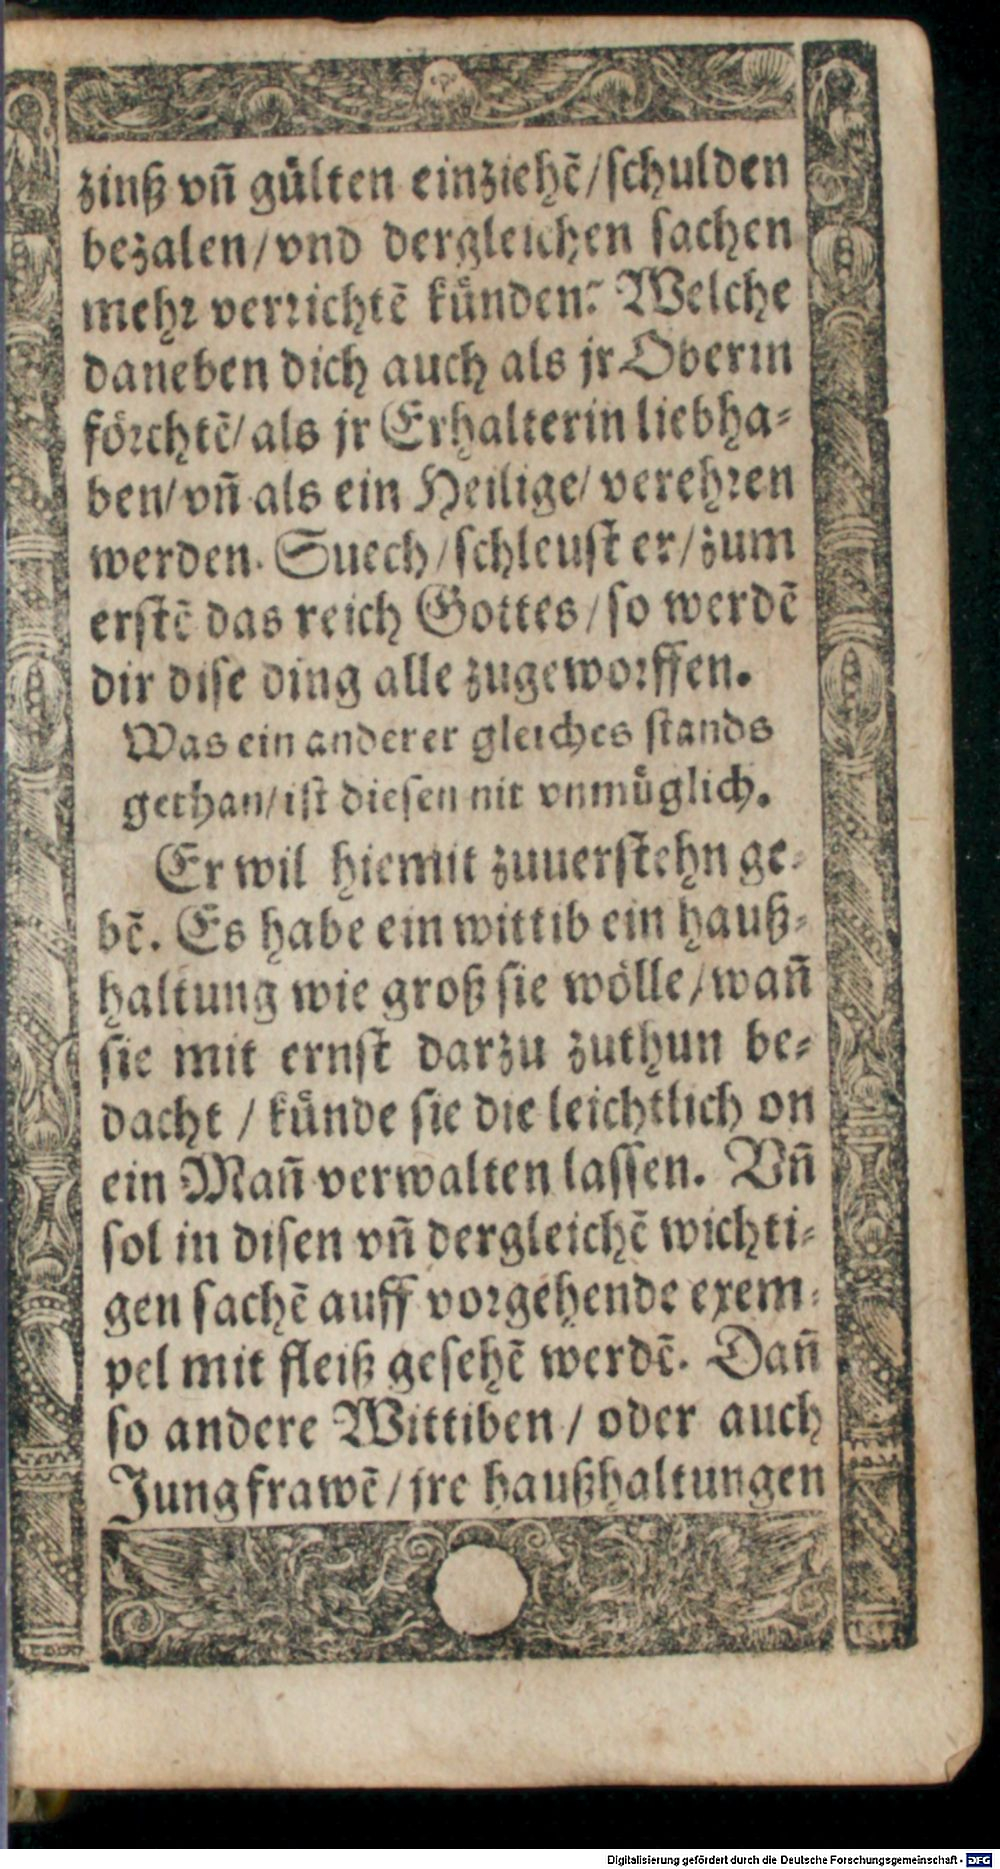 zinß vñ gülten einziehẽ/schulden
bezalen/vnd dergleichen sachen
mehr verrichtẽ künden? Welche
daneben dich auch als jr Oberin
förchtẽ/als jr Erhalterin liebha⸗
ben/vñ als ein Heilige/verehren
werden. Suech/schleust er/zum
erstẽ das reich Gottes/so werdẽ
dir dise ding alle zugeworffen.
Was ein anderer gleiches stands
gethan/ist diesen nit vnmüglich.
Er wil hiemit zuuerstehn ge⸗
bẽ. Es habe ein wittib ein hauß⸗
haltung wie groß sie wölle/wañ
sie mit ernst darzu zuthun be⸗
dacht/künde sie die leichtlich on
ein Mañ verwalten lassen. Vñ
sol in disen vñ dergleichẽ wichti⸗
gen sachẽ auff vorgehende exem⸗
pel mit fleiß gesehẽ werdẽ. Dañ
so andere Wittiben/oder auch
Jungfrawẽ/jre haußhaltungen
Digitalisierung gefördert durch die Deutsche Forschungsgemeinschaft - DFG